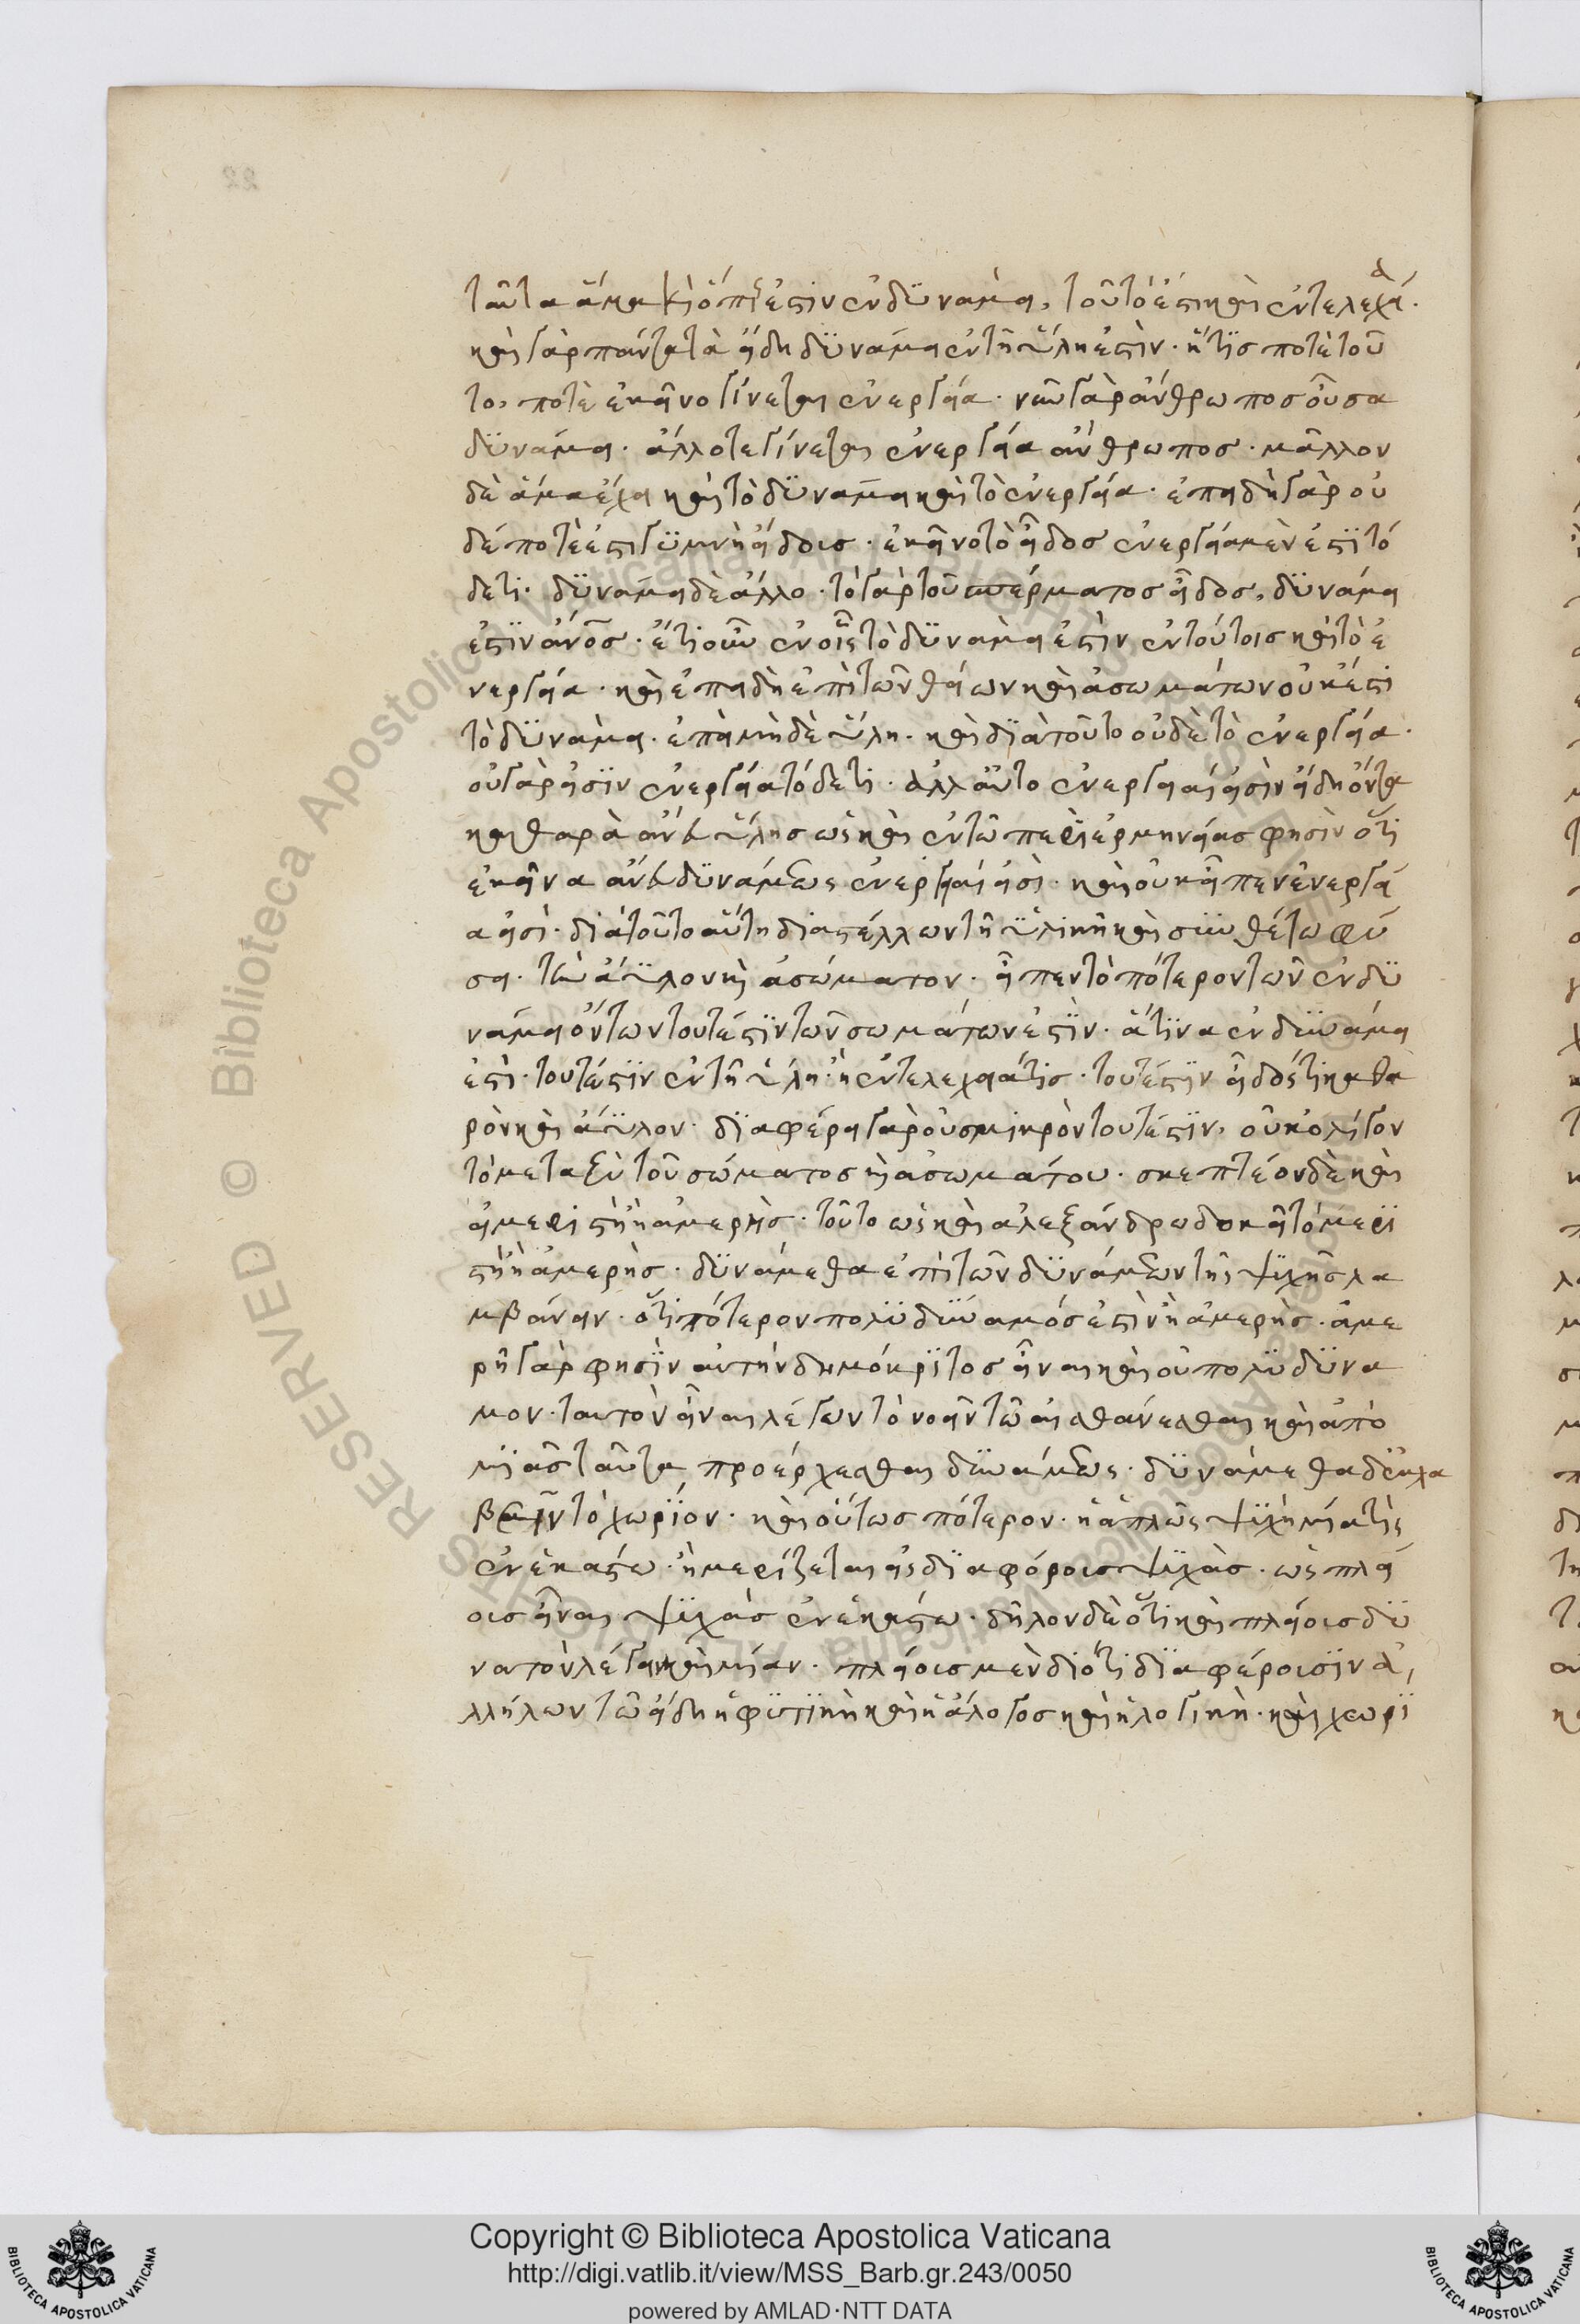 ταῦτα ἅμα καὶ ὅπερ ἐστὶν ἐν δϋνάμει, τοῦτο ἐστι καὶ ἐντελεχείᾳ.
καὶ γὰρ πάντα τὰ εἴδη δϋνάμει ἐν τῆ ὕλη ἐστὶν. ἥτις ποτὲ τοῦ
το, ποτὲ ἐκεῖνο γίνεται ἐνεργεία. νῦν γὰρ ἄνθρωπος οὖσα
δϋνάμει. ἄλλοτε γίνεται ἐνεργεία ἄνθρωπος. μᾶλλον
δὲ ἅμα ἔχει καὶ τὸ δϋνάμει καὶ τὸ ἐνεργεία. ἐπειδὴ γὰρ οὐ
δέποτε ἐστι γϋμνὴ εἴδους. ἐκεῖνο τὸ εἶδος ἐνεργεία μὲν ἐστϊ τό
δε τι. δϋνάμει δὲ ἄλλο. τὸ γὰρ τοῦ σπέρματος εἶδος, δϋνάμει
ἐστϊν ἄνος. ἔτι οὖν ἐν οἷς τὸ δϋνάμει ἐστὶν ἐν τούτοις καὶ τὸ ἐ
νεργεία. καὶ ἐπειδὴ ἐπὶ τῶν θείων καὶ ἀσωμάτων οὐκ ἔστι
τὸ δϋνάμει. ἐπεὶ μὴ δὲ ὕλη. καὶ δϊὰ τοῦτο οὐδὲ τὸ ἐνεργεία.
οὐ γὰρ εἰσϊν ἐνεργεία τόδε τι. ἀλλ' αὐτὸ ἐνεργειαί εἰσὶν εἴδη ὄντα
καθαρὰ ἄνευ ὕλης ὡς καὶ ἐν τῶ περὶ ἑρμηνείας φησὶν ὅτι
ἐκεῖνα ἄνευ δϋνάμεως ἐνέργειαί εἰσὶ. καὶ οὐκ εἶπεν ἐνεργεί
α εἰσὶ. διὰ τοῦτο αὕτη διαστέλλων τῆ ὑλικῆ καὶ σϋνθέτω φύ
σει. τὴν ἄϋλον καὶ ἀσώματον. εἶπεν τὸ πότερον τῶν ἐν δϋ
νάμει ὄντων τουτέστϊν τῶν σωμάτων ἐστϊν. ἅτϊνα ἐν δϋνάμει
ἐστι. τουτέστϊν ἐν τῆ ὕλη. ἢ ἐντελέχειά τις. τουτέστϊν εἶδός τι καθα
ρὸν καὶ ἄϋλον. δϊαφέρει γὰρ οὐ σμικρὸν τουτέστϊν, οὐκ ὀλίγον
τὸ μεταξὺ τοῦ σώματος καὶ ἀσωμάτου. σκεπτέον δὲ καὶ
εἰ μεριστὴ ἢ ἀμερὴς. τοῦτο ὡς καὶ ἀλεξάνδρω δοκεῖ τὸ μερϊ
στὴ ἢ ἀμερὴς. δϋνάμεθα ἐπὶ τῶν δϋνάμεων τῆς ψϋχῆς λα
μβάνειν. ὅτι πότερον πολϋδϋναμός ἐστὶν ἢ ἀμερὴς. ἀμε
ρῆ γὰρ φησϊν αὐτὴν δημόκρϊτος εἶναι καὶ οὐ πολϋδϋνα
μον. ταυτὸν εἶναι λέγων τὸ νοεῖν τῶ αἰσθάνεσθαι καὶ ἀπὸ
μϊᾶς ταῦτα προέρχεσθαι δϋνάμεως. δϋνάμεθα δὲ κ λα
βεῖν τὸ χωρϊον. καὶ οὕτως πότερον. ἡ ἁπλῶς ψϋχὴ μία τὶς
ἐν ἑκάστω. ἢ μερίζεται εἰς δϊαφόρους ψϋχὰς. ὡς πλεί
ους εἶναι ψϋχὰς ἐν ἑκάστω. δῆλον δὲ ὅτι καὶ πλείους δϋ
νατὸν λέγειν καὶ μίαν. πλείους μὲν διότι δϊαφέρουσϊν ἀ
λλήλων τῶ εἴδη ἡ φϋτϊκὴ καὶ ἡ ἄλογος καὶ ἡ λογϊκὴ. καὶ χωρϊ
Copyright © Biblioteca Apostolica Vaticana
http://digi.vatlib.it/view/MSS_Barb.gr.243/0050
powered by AMLAD·NTT DATA